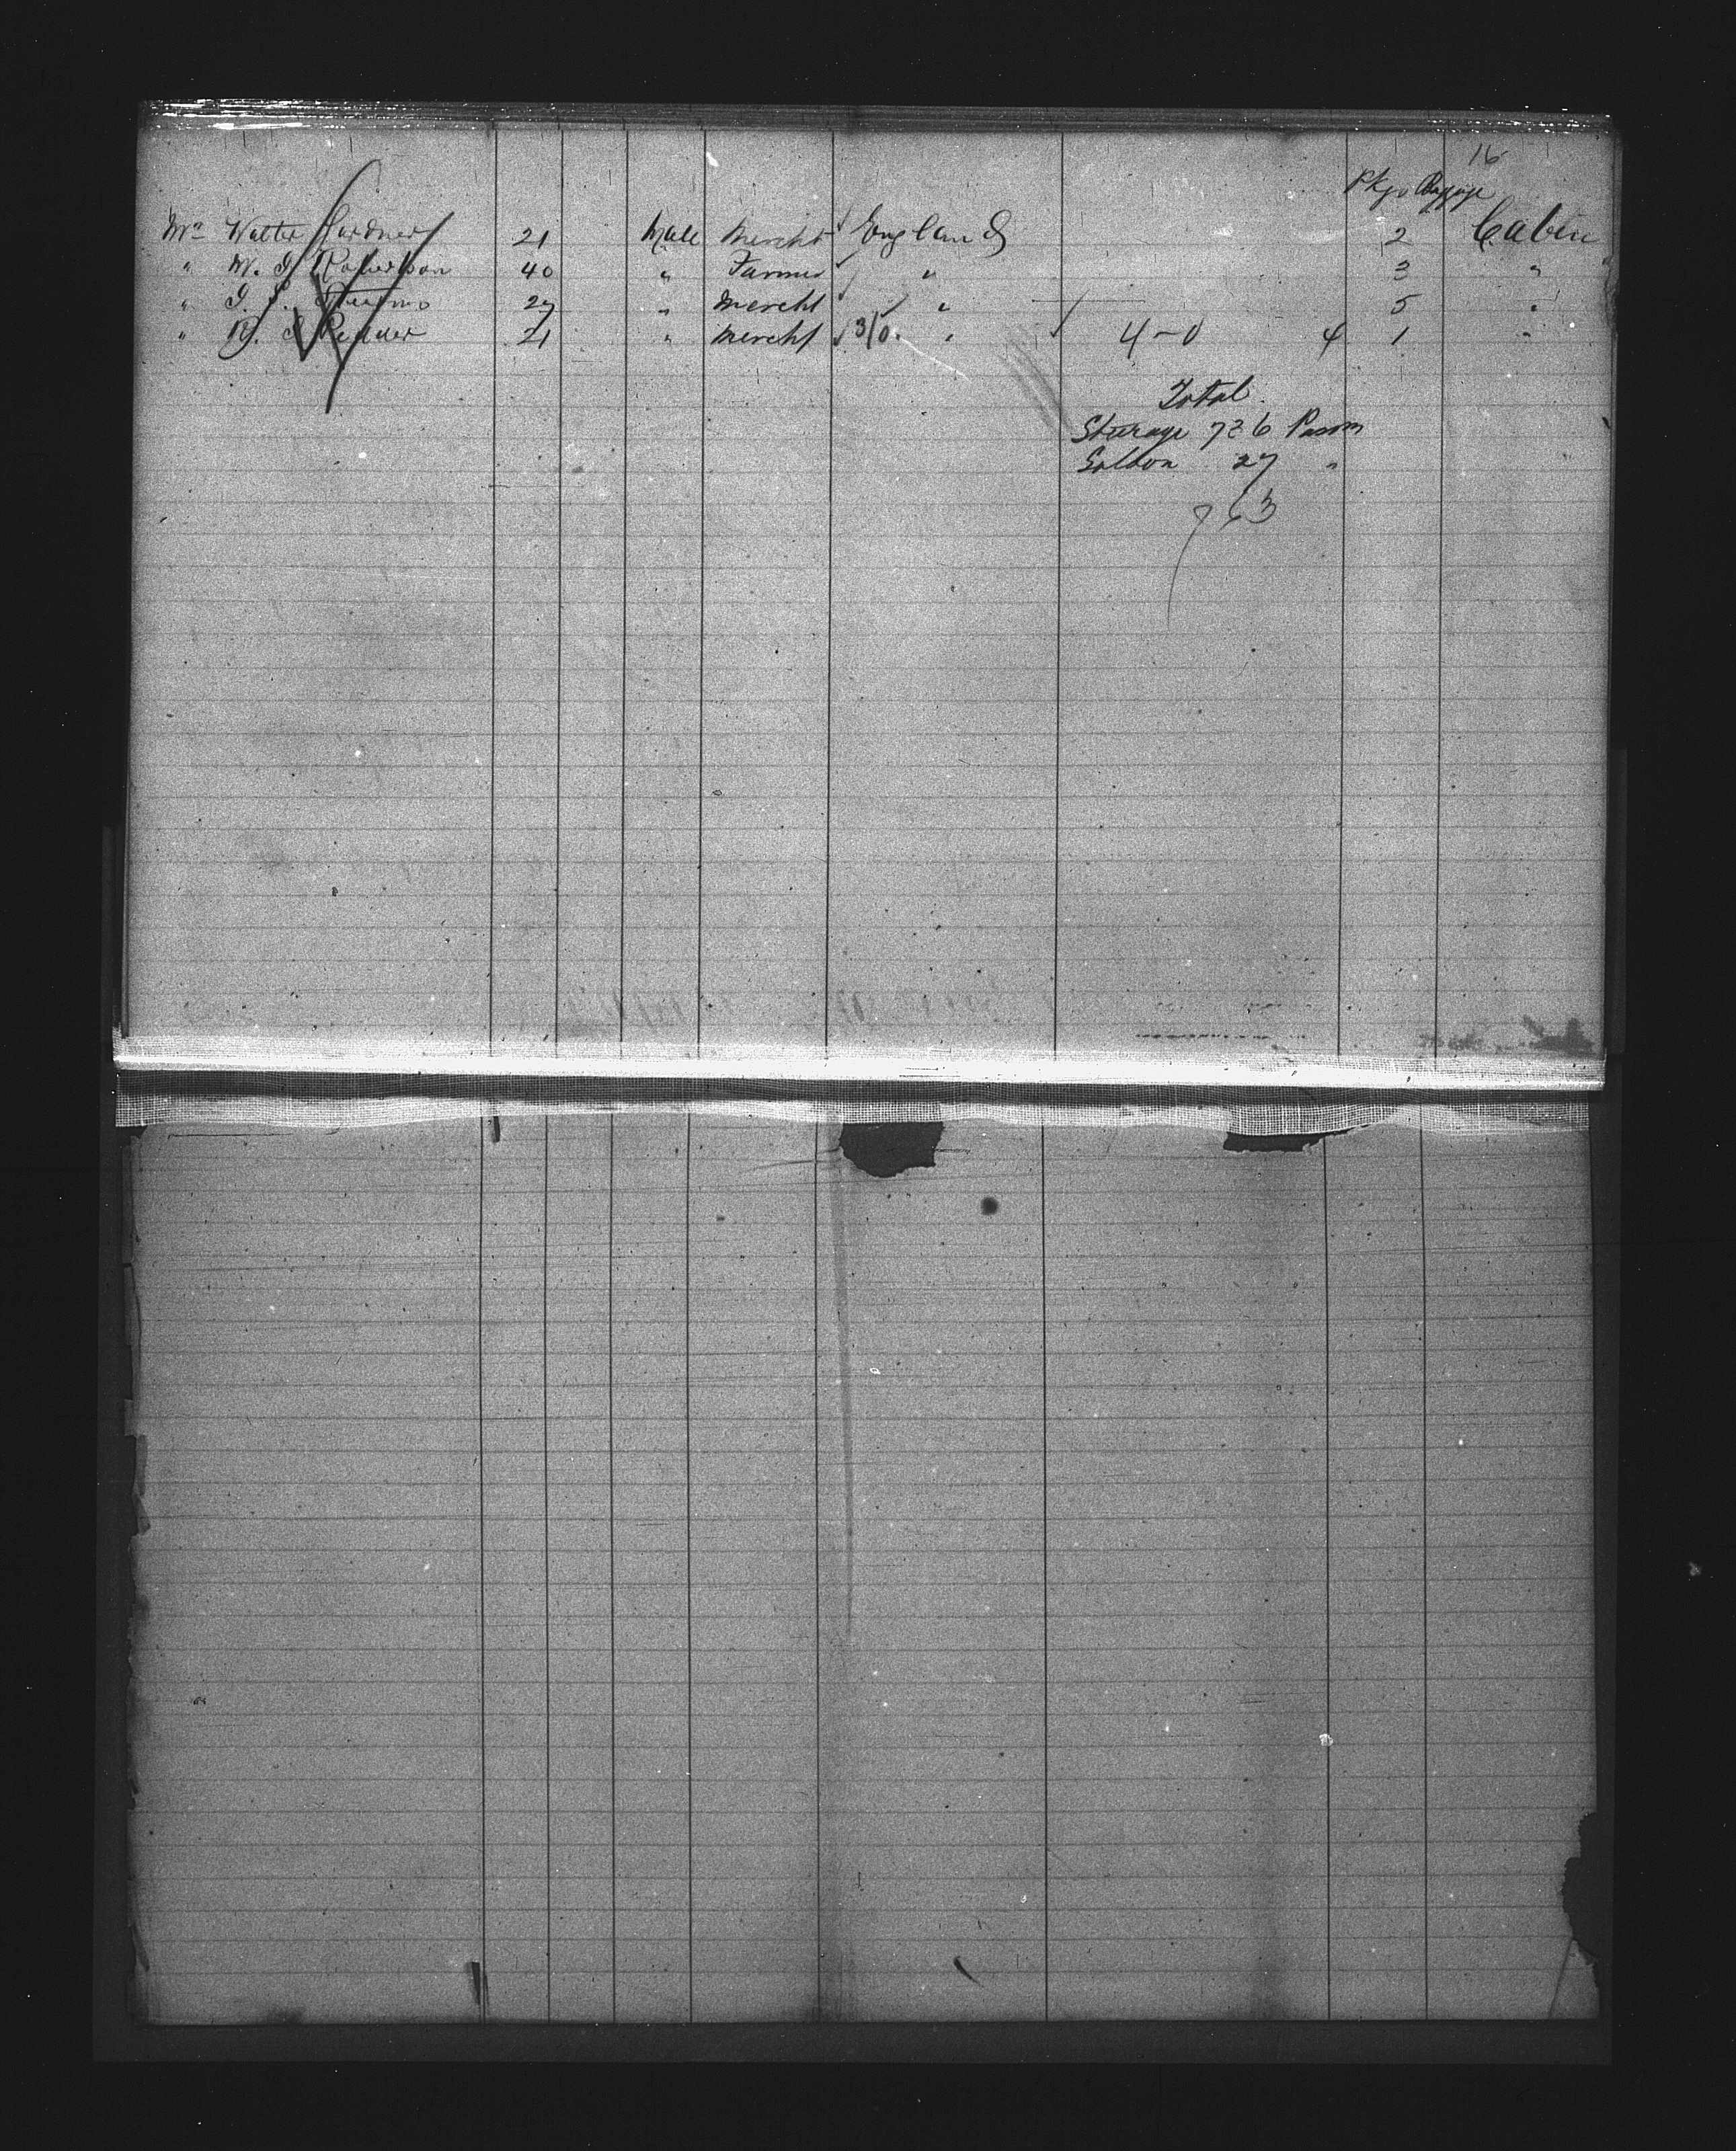 16
Pkgs Baggage
Mr Walter Gardner 21 Male Mercht England 2 Cabin
" W. J. Robertson 40 " Farmer " 3 "
" J. 27 " Mercht " 5 "
" 21 " Mercht 3/0. " 4-0 4 1 "
Total.
Steerage 736 Passrs
Saloon 27 "
763